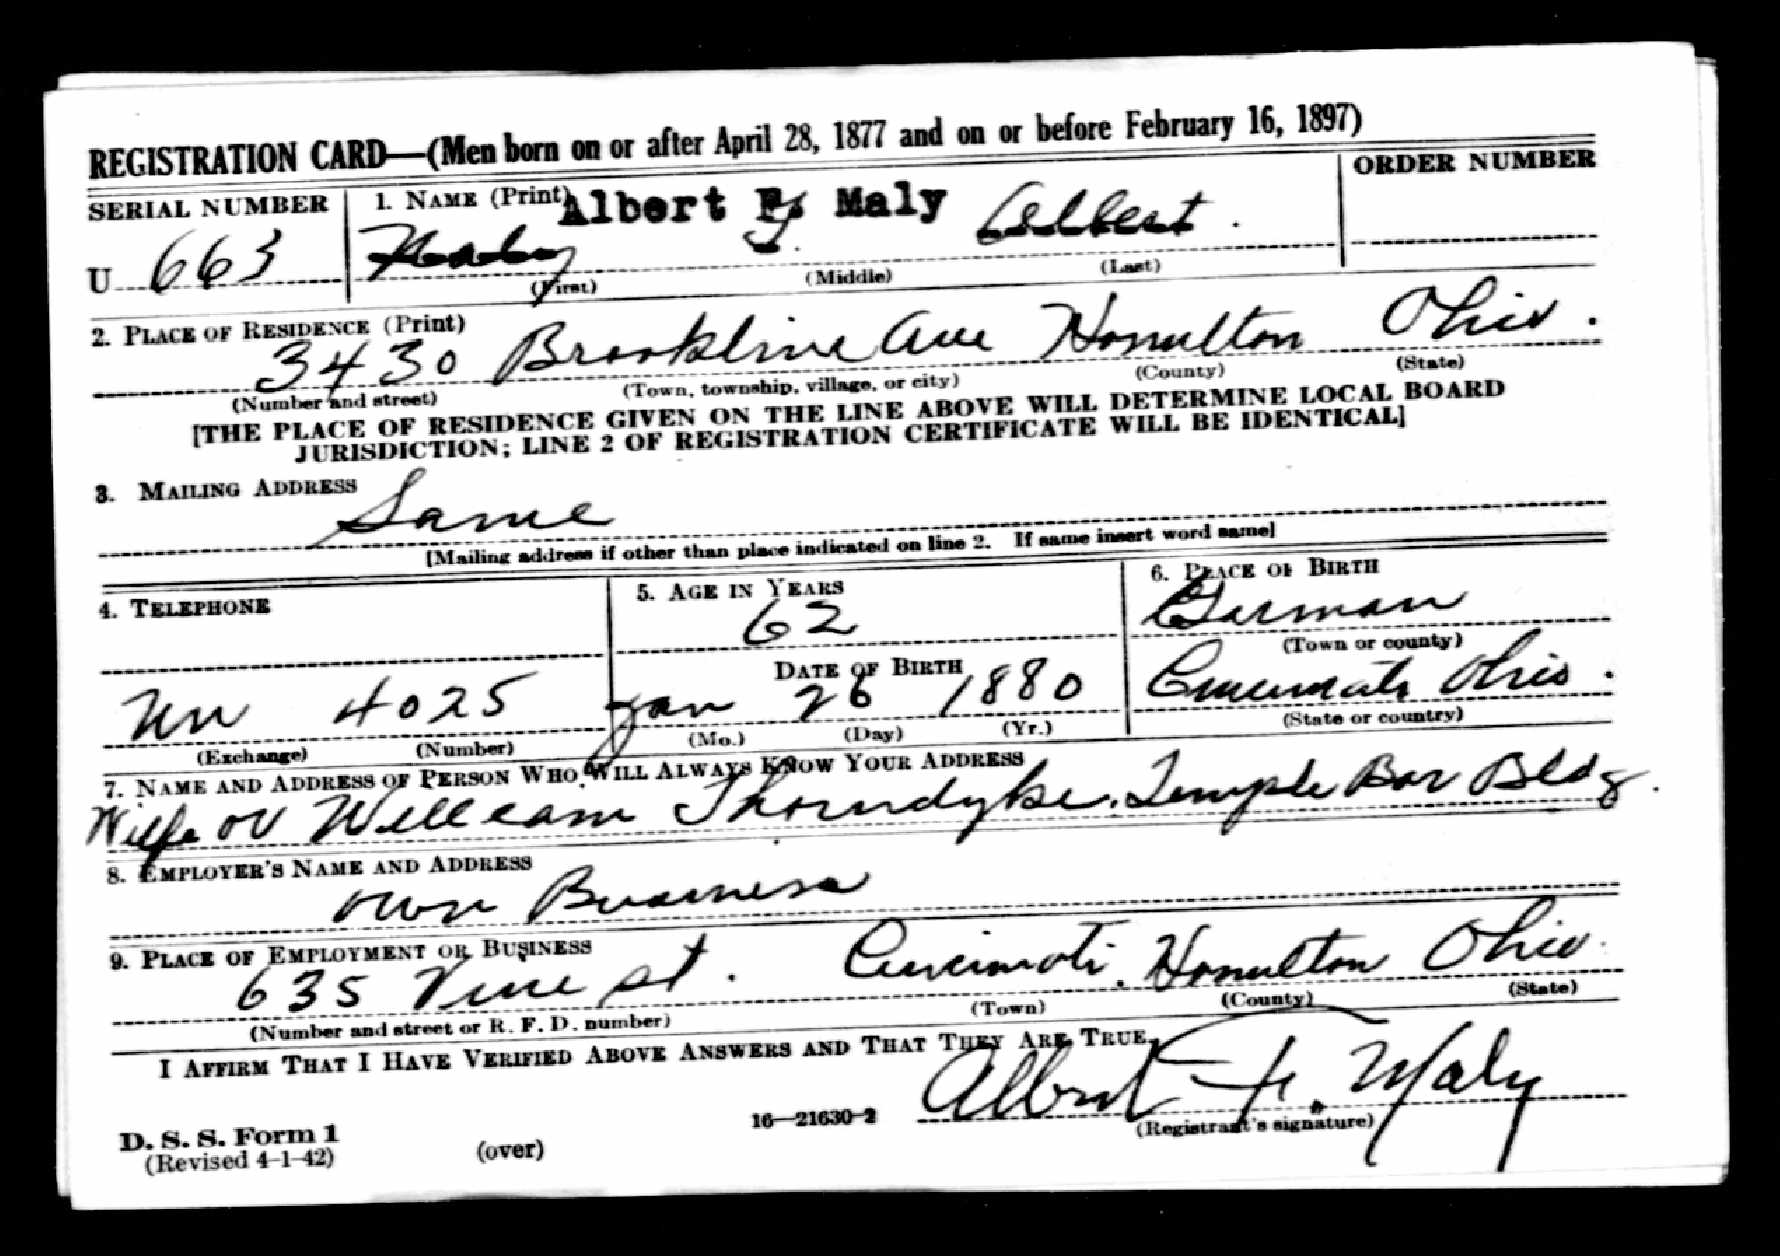 REGISTRATION CARD—(Men born on or after April 28, 1877 and on or before February 16, 1897)
SERIAL NUMBER 1. NAME (Print) Albert F. Maly Albert. ORDER NUMBER
U 663 F.
(First) (Middle) (Last)
2. PLACE OF RESIDENCE (Print)
3430 Brookline Ave Hamilton Ohio.
(Number and street) (Town, township, village, or city) (County) (State)
[THE PLACE OF RESIDENCE GIVEN ON THE LINE ABOVE WILL DETERMINE LOCAL BOARD
JURISDICTION; LINE 2 OF REGISTRATION CERTIFICATE WILL BE IDENTICAL]
3. MAILING ADDRESS
Same
[Mailing address if other than place indicated on line 2. If same insert word same]
4. TELEPHONE 5. AGE IN YEARS 6. PLACE OF BIRTH
62 German
(Town or county)
DATE OF BIRTH
Un 4025 Jan 26 1880 Cincinnati Ohio.
(Exchange) (Number) (Mo.) (Day) (Yr.) (State or country)
7. NAME AND ADDRESS OF PERSON WHO WILL ALWAYS KNOW YOUR ADDRESS
Wife or William Thorndyke. Temple Bar Bldg.
8. EMPLOYER'S NAME AND ADDRESS
own Business
9. PLACE OF EMPLOYMENT OR BUSINESS
635 Vine st. Cincinati. Hamilton Ohio.
(Number and street or R. F. D. number) (Town) (County) (State)
I AFFIRM THAT I HAVE VERIFIED ABOVE ANSWERS AND THAT THEY ARE TRUE.
Albert F. Maly
16—21630-2 (Registrant's signature)
D. S. S. Form 1
(Revised 4-1-42) (over)